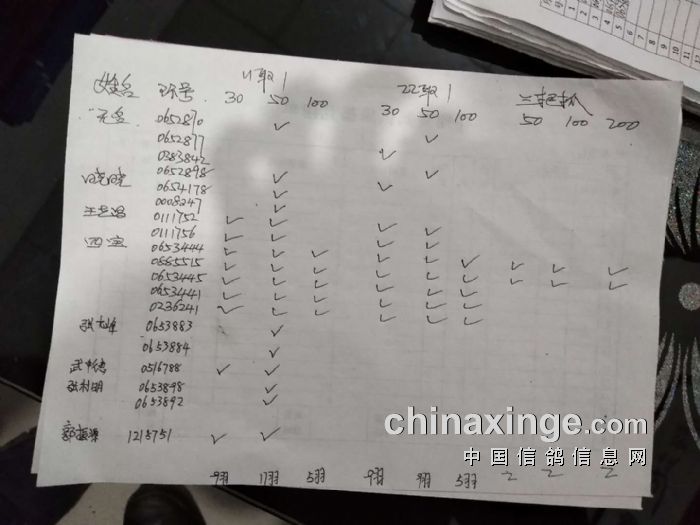 姓名 环号 11取1 22取1 三轮抓
30 50 100 30 50 100 50 100 200
无名 0652870 ✓
0652877 ✓
0383842 ✓
晓晓 0652898 ✓ ✓
0654178 ✓ ✓
0008247 ✓
0111752 ✓ ✓
0111756 ✓ ✓ ✓ ✓
四宝 0653444 ✓ ✓ ✓ ✓ ✓
0885515 ✓ ✓ ✓ ✓ ✓ ✓ ✓ ✓ ✓
0653445 ✓ ✓ ✓ ✓ ✓ ✓ ✓ ✓ ✓
0653441 ✓ ✓ ✓ ✓ ✓ ✓
0236241 ✓ ✓ ✓ ✓ ✓ ✓
0653883 ✓
0653884 ✓
0516788 ✓ ✓
张利明 0653898 ✓
0653892 ✓
郭振源 1215751 ✓ ✓
9羽 17羽 5羽 9羽 9羽 5羽 2 2 2
chinaxinge.com
中国信鸽信息网